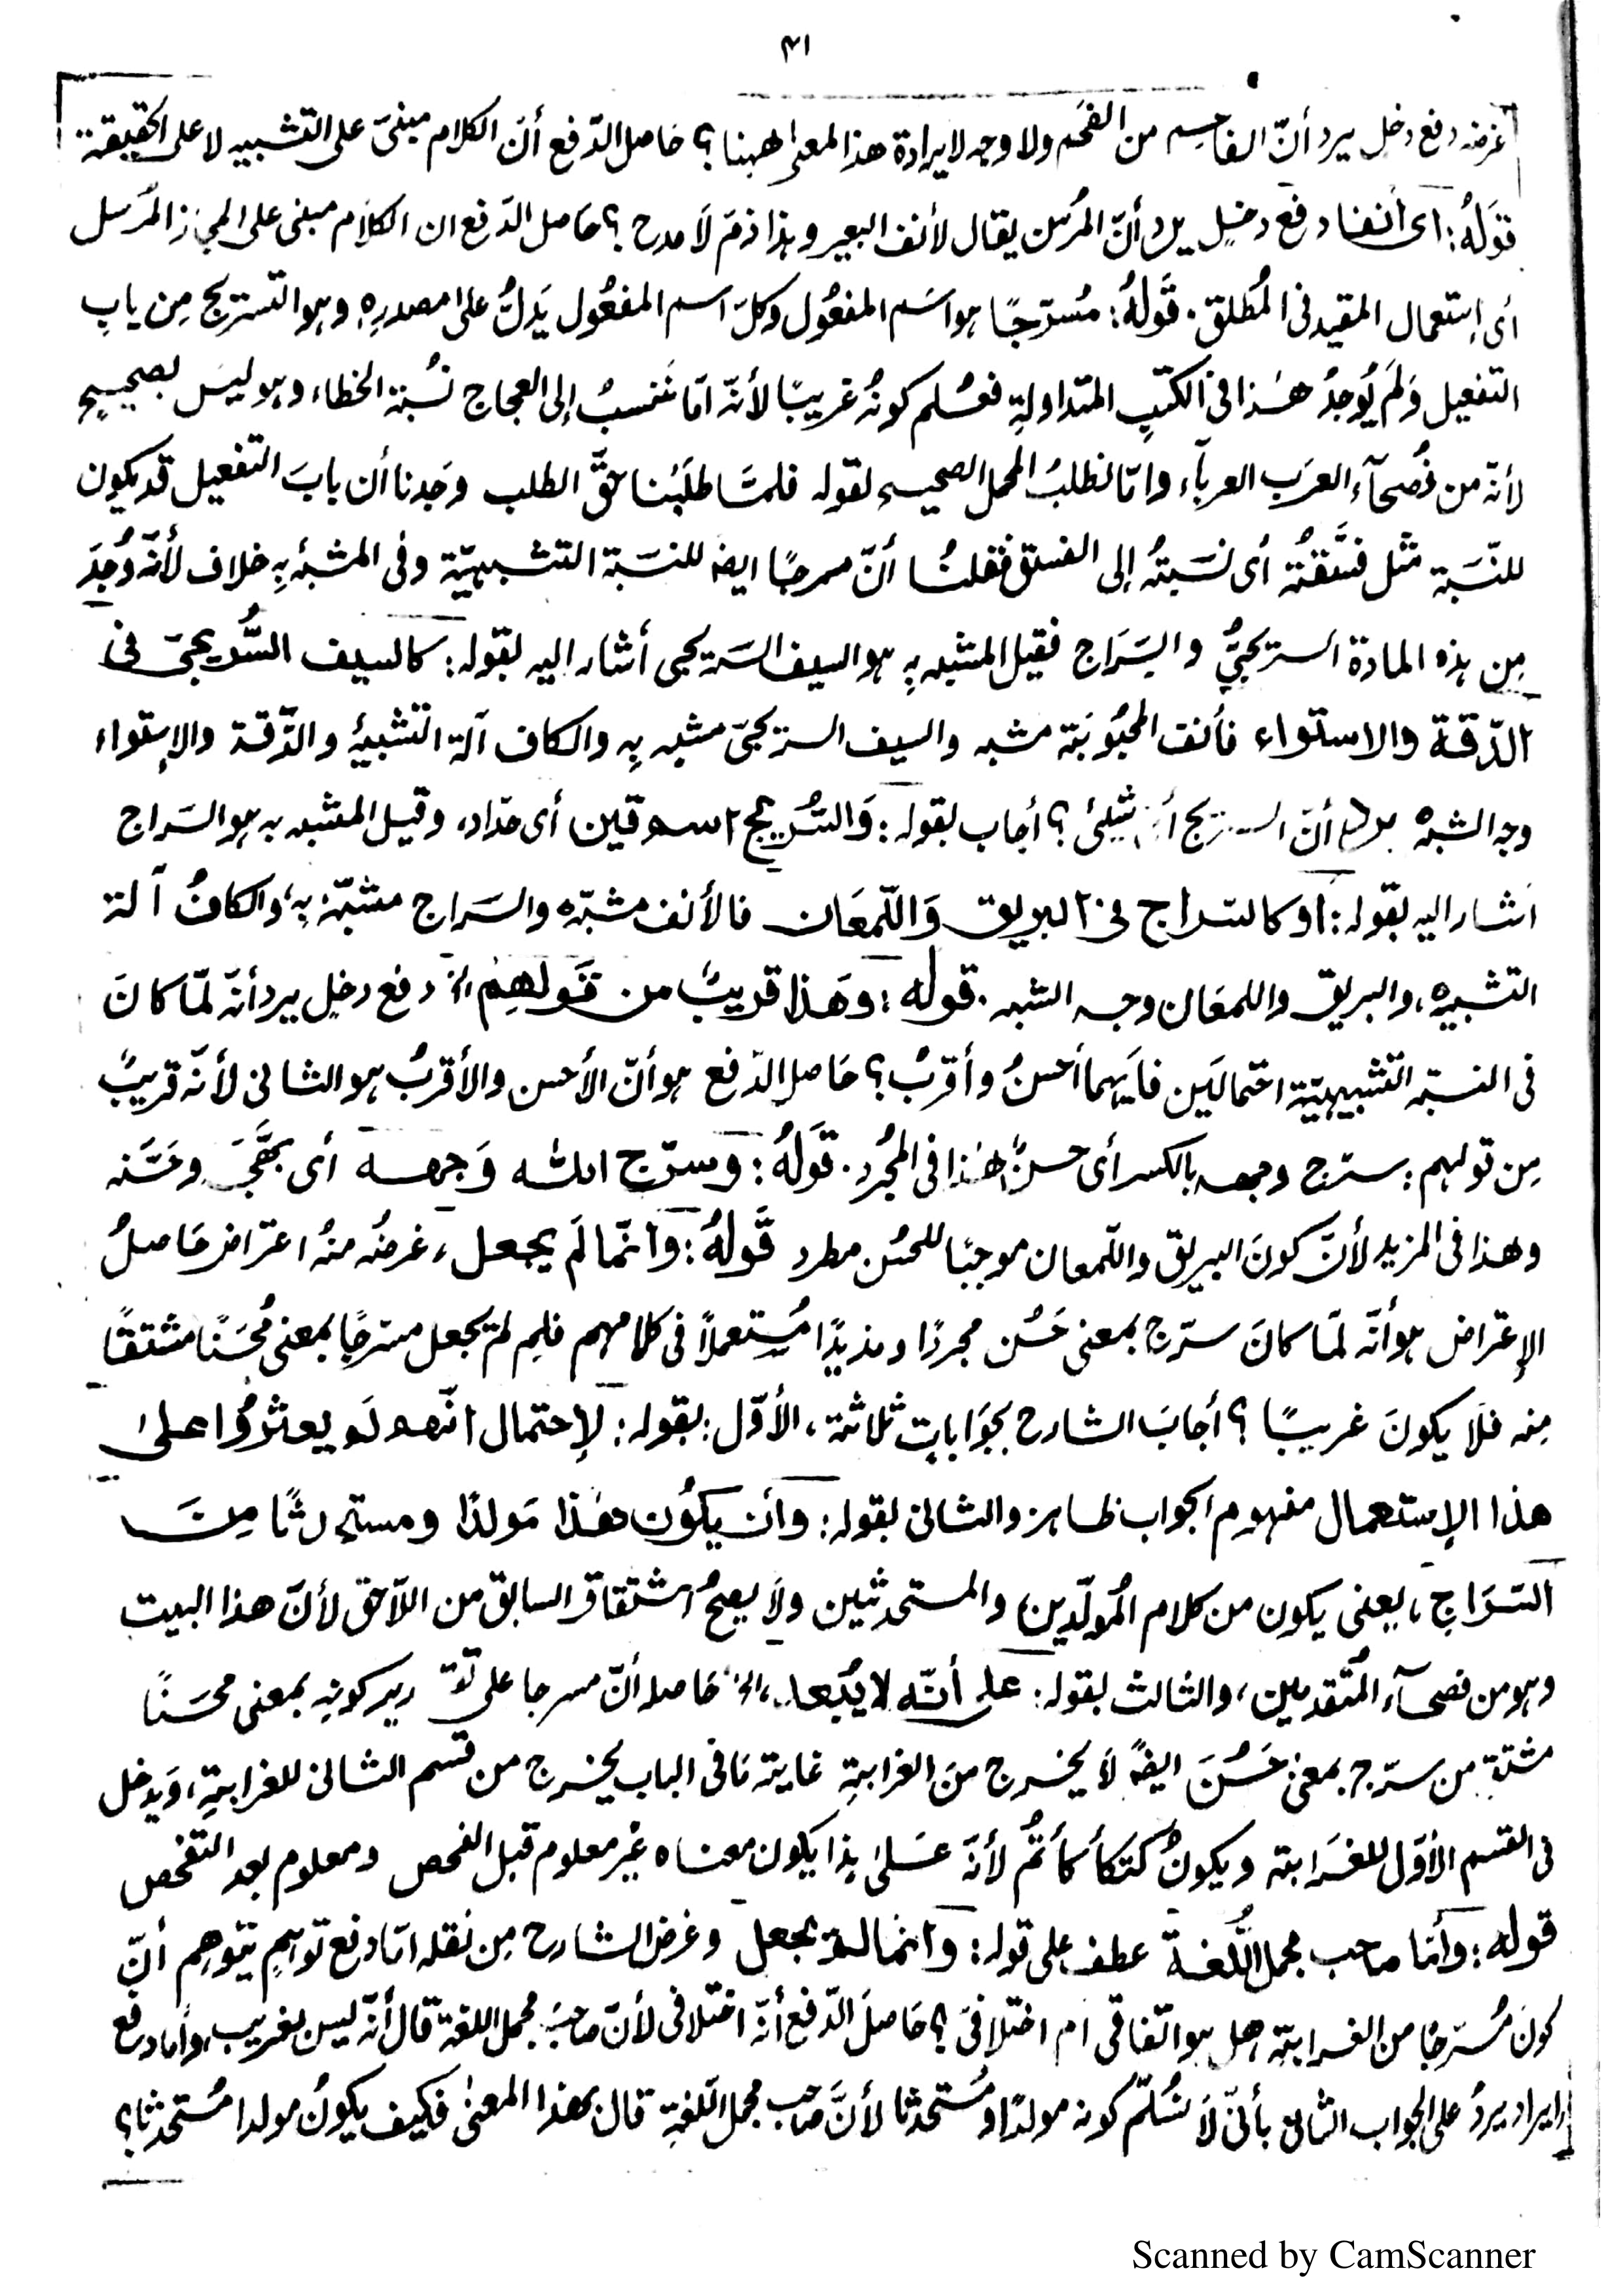 ٤١
غرضه دفع دخل يرد أنّ الفاحم من الفحَم ولا وجه لايرادة هذا المعنى ههنا؟ حَاصل الدّفع أنَ الكلام مبنىّ على التشبيه لا على الحقيقة
قَولَهُ: اى أنفا دفع دخلٍ يرد أنّ المرُسن يقال لأنف البعير وهذا ذمَ لَا مدح؟ حَاصل الدَفع ان الكلَام مبنى على المجاز المرَسل
أى إستعمال المقيد فى المُطلق. قَولَهُ: مُسرّجًا هو اسَم المفعُول وكلّ اسم المفعُول يَدلُّ على مصدرِهِ وهو التسريج مِن بابِ
التفعيل وَلَم يُوجدُ هٰذا فى الكتبِ المتداولةِ فعُلم كونُهُ غريبًا لأنّه امّا نَنسبُ إلى العجاج نسُبة الخطاء وهو ليسَ بصحيحٍ
لأنّه من فُصحآءِ العرَب العربآء وامّا نطلبُ المحمل الصحيح لقوله فلمَّا طلَبُنا حقَّ الطلب وجَدنا أن بابَ التفعيل قد يكون
للنّسَبة مثل فسَّقتُه أى نَسَبتُه إلى الفسق فقلنُا أنّ مسرجًا ايضا للنسَبة التشبيهيّة وفى المشبّه بِهِ خلاف لأنّه وُجدَ
مِن هذه المادة السريجىُّ والسِّرَاج فقيل المشبه بِهِ هو السيف السّريجى أشار اليه بقوله: كالسيف السُّريجىّ فى
الدّقة والاستواء فأنف المحبُوبَة مشبه والسيف السريجىّ مشبه بِهِ والكاف آلة التشبيه والدّقة والإستواء
وجه الشبه يرد أنّ السريج أىّ شيئ؟ أجاب بقوله: وَالسُّريج اسم قين أى حدّاد، وقيل المشبه به هو السّراج
أشار اليه بقوله: أو كالسراج فى البريق وَاللّمعَان فالأنف مشبّه والسَراج مشبّه بِهِ، والكافُ آلة
التشبيه، والبريق واللمعَان وجه الشبه. قوله: وهَذا قريبٌ من قَولهِم الخ دفع دخلٍ يرد أنّه لمّا كانَ
فى النسبَة التشبيهيّة احتمالَين فأيهما أحسنُ وأقربُ؟ حَاصل الدّفع هو أنّ الأحسن والأقربُ هو الثانى لأنّه قريبٌ
مِن قولهم: سرّج وجهه بالكسر أى حسنُ هٰذا فى المجُرّد. قَولَهُ: وسرّج الله وَجهه أى بهّجَه وحَسَّنه
وهذا فى المزيد لأنَّ كونَ البريق واللّمعان موجبًا للحسُن مطرد قَولَهُ: وانّما لَم يجعل، غرضُه منهُ اعتراض حَاصلُ
الإعتراض هو أنّه لمّا كانَ سرّج بمعنى حَسُن مجردًا ومزيدًا مُستعملاً فى كلامهم فلِم لم يجعل مسرجًا بمعنى مُحَسَنًا مشتقًا
مِنه فلَا يكونَ غريبًا؟ أجابَ الشارح بجَوَاباتٍ ثلاثة، الأوّل: بقوله: لإحتمال انّهم لَم يعثرُوا على
هذا الإستعمال مفهوم الجواب ظاهر والثانى بقوله: وأن يكُون هٰذا مَولدًا ومستحدثًا مِنَ
السّرَاج، يعنى يكون من كلام المُولّدين والمستحدثين ولَا يصحُ اشتقاق السابق من اللّاحق لأنّ هذا البيت
وهو من فصحآء المُتقدمين، والثالث بقوله: على أنّه لا يبُعد، الخ حَاصله أنّ مسرجا على تقدير كونِه بمعنى محسَنًا
مشتق من سرّج بمعنى حَسُنَ ايضًا لَا يخرج من الغرابةِ غايته مَا فى الباب يخرج من قسم الثانى للغرابةِ، وَيدخل
فى القسم الأوّل للغَرابة ويكونُ كَتَكأكأتُم لأنّه عَلىٰ هذا يكون معناه غيُر معلوم قبل الفحص ومعلوم بعد التفحّص
قوله: وأمّا صاحب مجمل اللُّغة عطف على قوله: وانّما لم يجعل وغرض الشارح مِن نقله امّا دفع توهمٍ يتوهم أنّ
كونَ مُسَرجًا من الغرابة هل هو اتفاقى ام اختلافىّ؟ حَاصل الدّفع أنّه اختلافى لأنّ صَاحبَ مجمل اللغة قال أنّه ليس بغريب، وامّا دفع
ايراد يردُ على الجواب الثانى بأنّا لَا نسُلّم كونه مولدًا ومُستحدثا لأنَّ صَاحب مجمل اللّغةِ قال بهذا المعنىٰ فكيف يكونُ مولدا مُستحدثا؟
Scanned by CamScanner